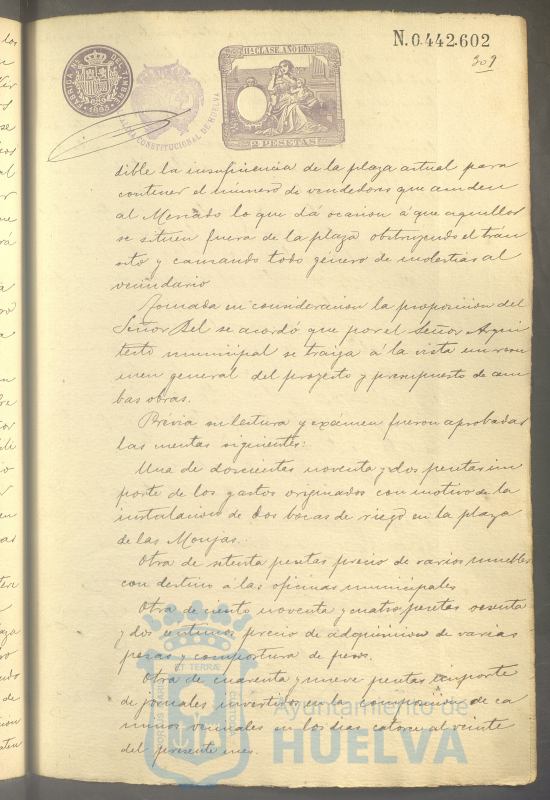 N.0.442.602
309
11ª CLASE. AÑO 1895
2 PESETAS
CONSTITUCIONAL DE HUELVA
dible la insuficiencia de la plaza actual para
contener el número de vendedores que acuden
al Mercado lo que dá ocasion á que aquellos
se situen fuera de la plaza obstruyendo el trán
sito y causando todo género de molestias al
vecindario
Tomada en consideracion la proposicion del
Señor Bel se acordó que por el Señor Arqui
tecto municipal se traiga á la vista un resu
men general del proyecto y presupuesto de am
bas obras.
Prévia su lectura y exámen fueron aprobadas
las cuentas siguientes:
Una de doscientas noventa y dos pesetas im
porte de los gastos originados con motivo de la
instalacion de dos bocas de riego en la plaza
de las Monjas.
Otra de setenta pesetas precio de varios muebles
con destino á las oficinas municipales
Otra de ciento noventa y cuatro pesetas ochenta
y dos centimos precio de adquisicion de varias
pesas y compostura de pesos.
Otra de cuarenta y nueve pesetas importe
de jornales invertidos en la composicion de ca
minos vecinales en los dias catorce al veinte
del presente mes.
Ayuntamiento de
HUELVA